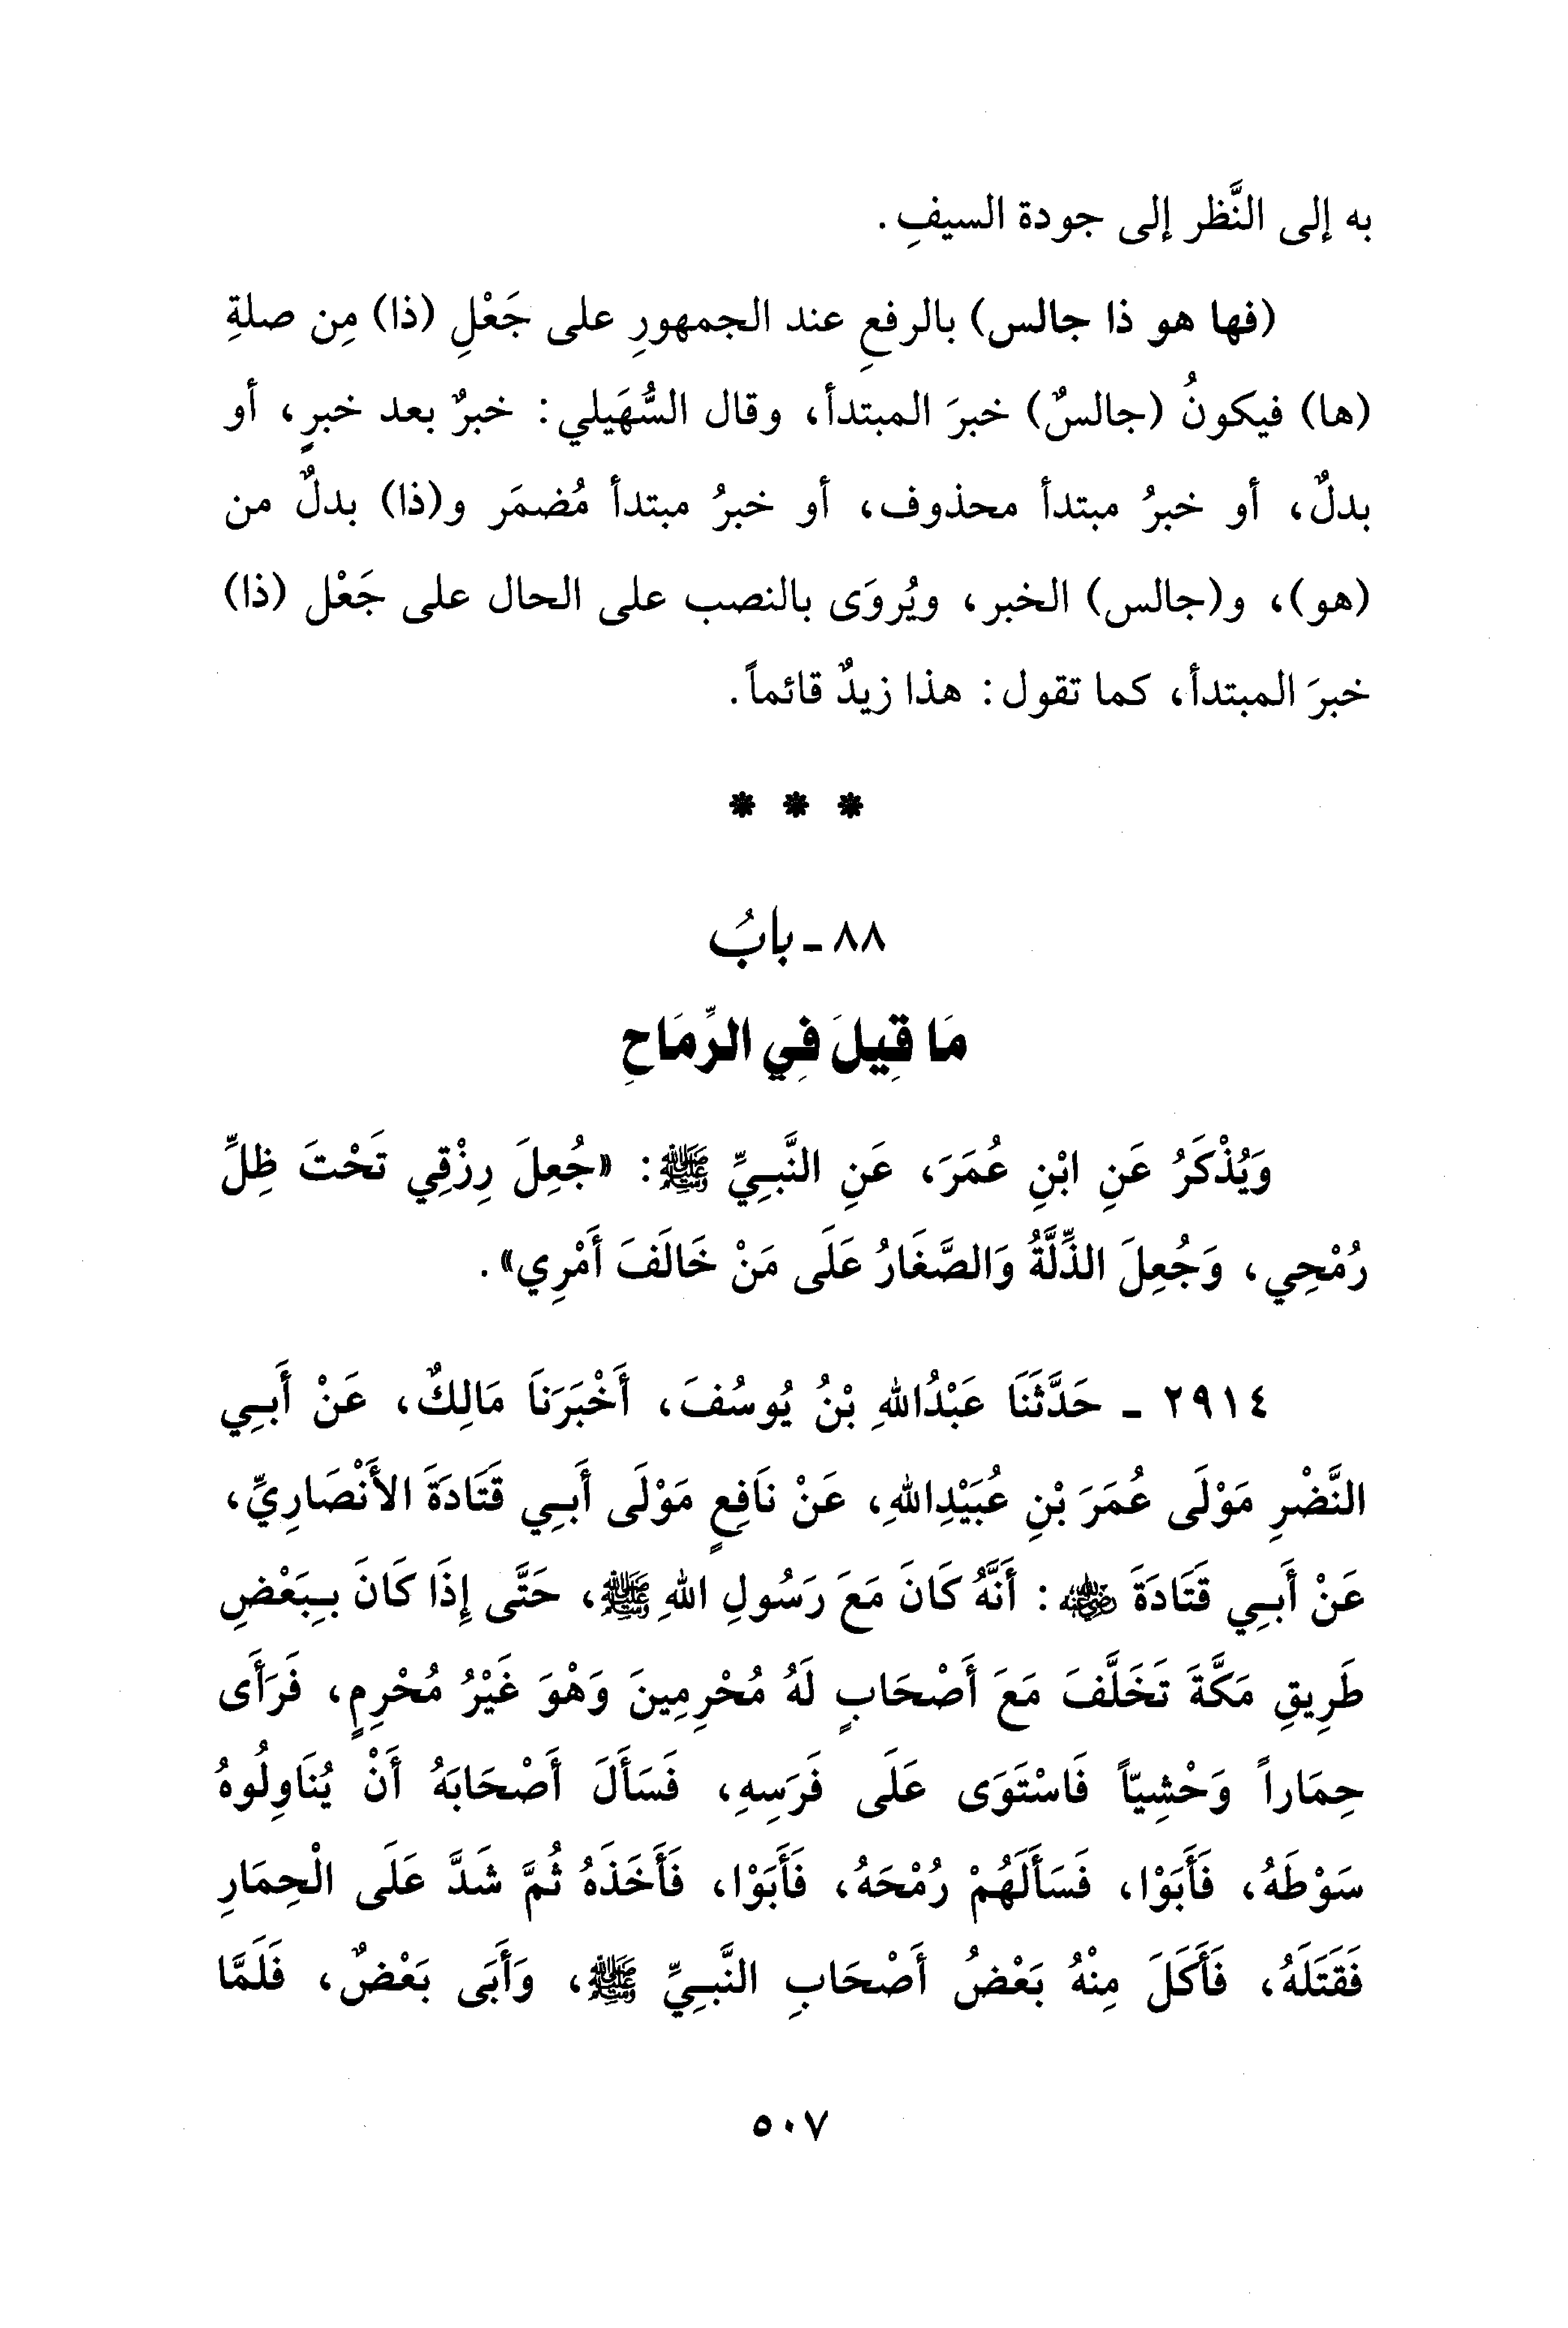 به إلى النَّظر إلى جودة السيفِ.
(فها هو ذا جالس) بالرفعِ عند الجمهورِ على جَعْلِ (ذا) مِن صلةِ
(ها) فيكونُ (جالسٌ) خبرَ المبتدأ، وقال السُّهَيلي: خبرٌ بعد خبرٍ، أو
بدلٌ، أو خبرُ مبتدأ محذوف، أو خبرُ مبتدأ مُضمَر و(ذا) بدلٌ من
(هو)، و(جالس) الخبر، ويُروَى بالنصب على الحال على جَعْل (ذا)
خبرَ المبتدأ، كما تقول: هذا زيدٌ قائماً.
* * *
٨٨ - بابُ
مَا قِيلَ فِي الرِّمَاحِ
وَيُذْكَرُ عَنِ ابْنِ عُمَرَ، عَنِ النَّبِيِّ ﷺ: «جُعِلَ رِزْقِي تَحْتَ ظِلِّ
رُمْحِي، وَجُعِلَ الذِّلَّةُ وَالصَّغَارُ عَلَى مَنْ خَالَفَ أَمْرِي».
٢٩١٤ - حَدَّثَنَا عَبْدُاللهِ بْنُ يُوسُفَ، أَخْبَرَنَا مَالِكٌ، عَنْ أَبِي
النَّضْرِ مَوْلَى عُمَرَ بْنِ عُبَيْدِاللهِ، عَنْ نَافِعٍ مَوْلَى أَبِي قَتَادَةَ الأَنْصَارِيِّ،
عَنْ أَبِي قَتَادَةَ ﷺ: أَنَّهُ كَانَ مَعَ رَسُولِ اللهِ ﷺ، حَتَّى إِذَا كَانَ بِبَعْضِ
طَرِيقِ مَكَّةَ تَخَلَّفَ مَعَ أَصْحَابٍ لَهُ مُحْرِمِينَ وَهْوَ غَيْرُ مُحْرِمٍ، فَرَأَى
حِمَاراً وَحْشِيّاً فَاسْتَوَى عَلَى فَرَسِهِ، فَسَأَلَ أَصْحَابَهُ أَنْ يُنَاوِلُوهُ
سَوْطَهُ، فَأَبَوْا، فَسَأَلَهُمْ رُمْحَهُ، فَأَبَوْا، فَأَخَذَهُ ثُمَّ شَدَّ عَلَى الْحِمَارِ
فَقَتَلَهُ، فَأَكَلَ مِنْهُ بَعْضُ أَصْحَابِ النَّبِيِّ ﷺ، وَأَبَى بَعْضٌ، فَلَمَّا
٥٠٧